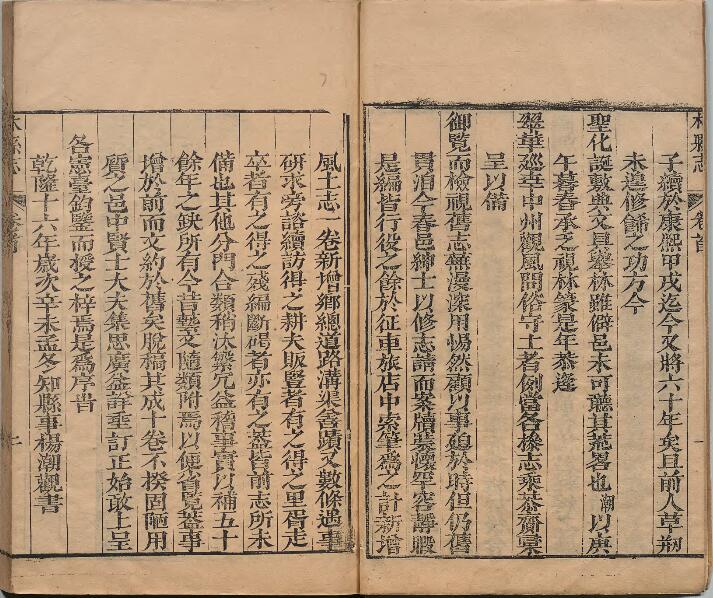 林縣志 卷首 一
子續於康熙甲戌迄今又將六十年矣且前人草剏
未遑修餙之功方今
聖化誕敷典文具舉林雖僻邑未可聽其荒畧也潮以庚
午暮春承乏視林篆是年恭逢
翠華廵幸中州觀風問俗守土者例當各條志乘恭齎彙
呈以備
御覽而檢視舊志蕪漫深用惕然顧以事廹於時但仍舊
貫洎今春邑紳士以修志請而案牘裝懷罕容靜暇
是編皆行役之餘於征車旅店中索筆爲之計新增
風土志一卷新增鄉總道路溝渠善蹟又數條遇事
研求旁諮續訪得之耕夫販豎者有之得之里胥走
卒者有之得之殘編斷碣者亦有之葢皆前志所未
備也其他分門合類稍汰繁冗益稽事實以補五十
餘年之缺所有今昔藝文隨類附焉以便省覽葢事
增於前而文約於舊矣脫稿共成十卷不揆固陋用
質之邑中賢士大夫集思廣益詳重訂正始敢上呈
各憲臺鈞鑒而授之梓焉是爲序旹
乾隆十六年歲次辛未孟冬知縣事楊潮觀書
林縣志 卷首